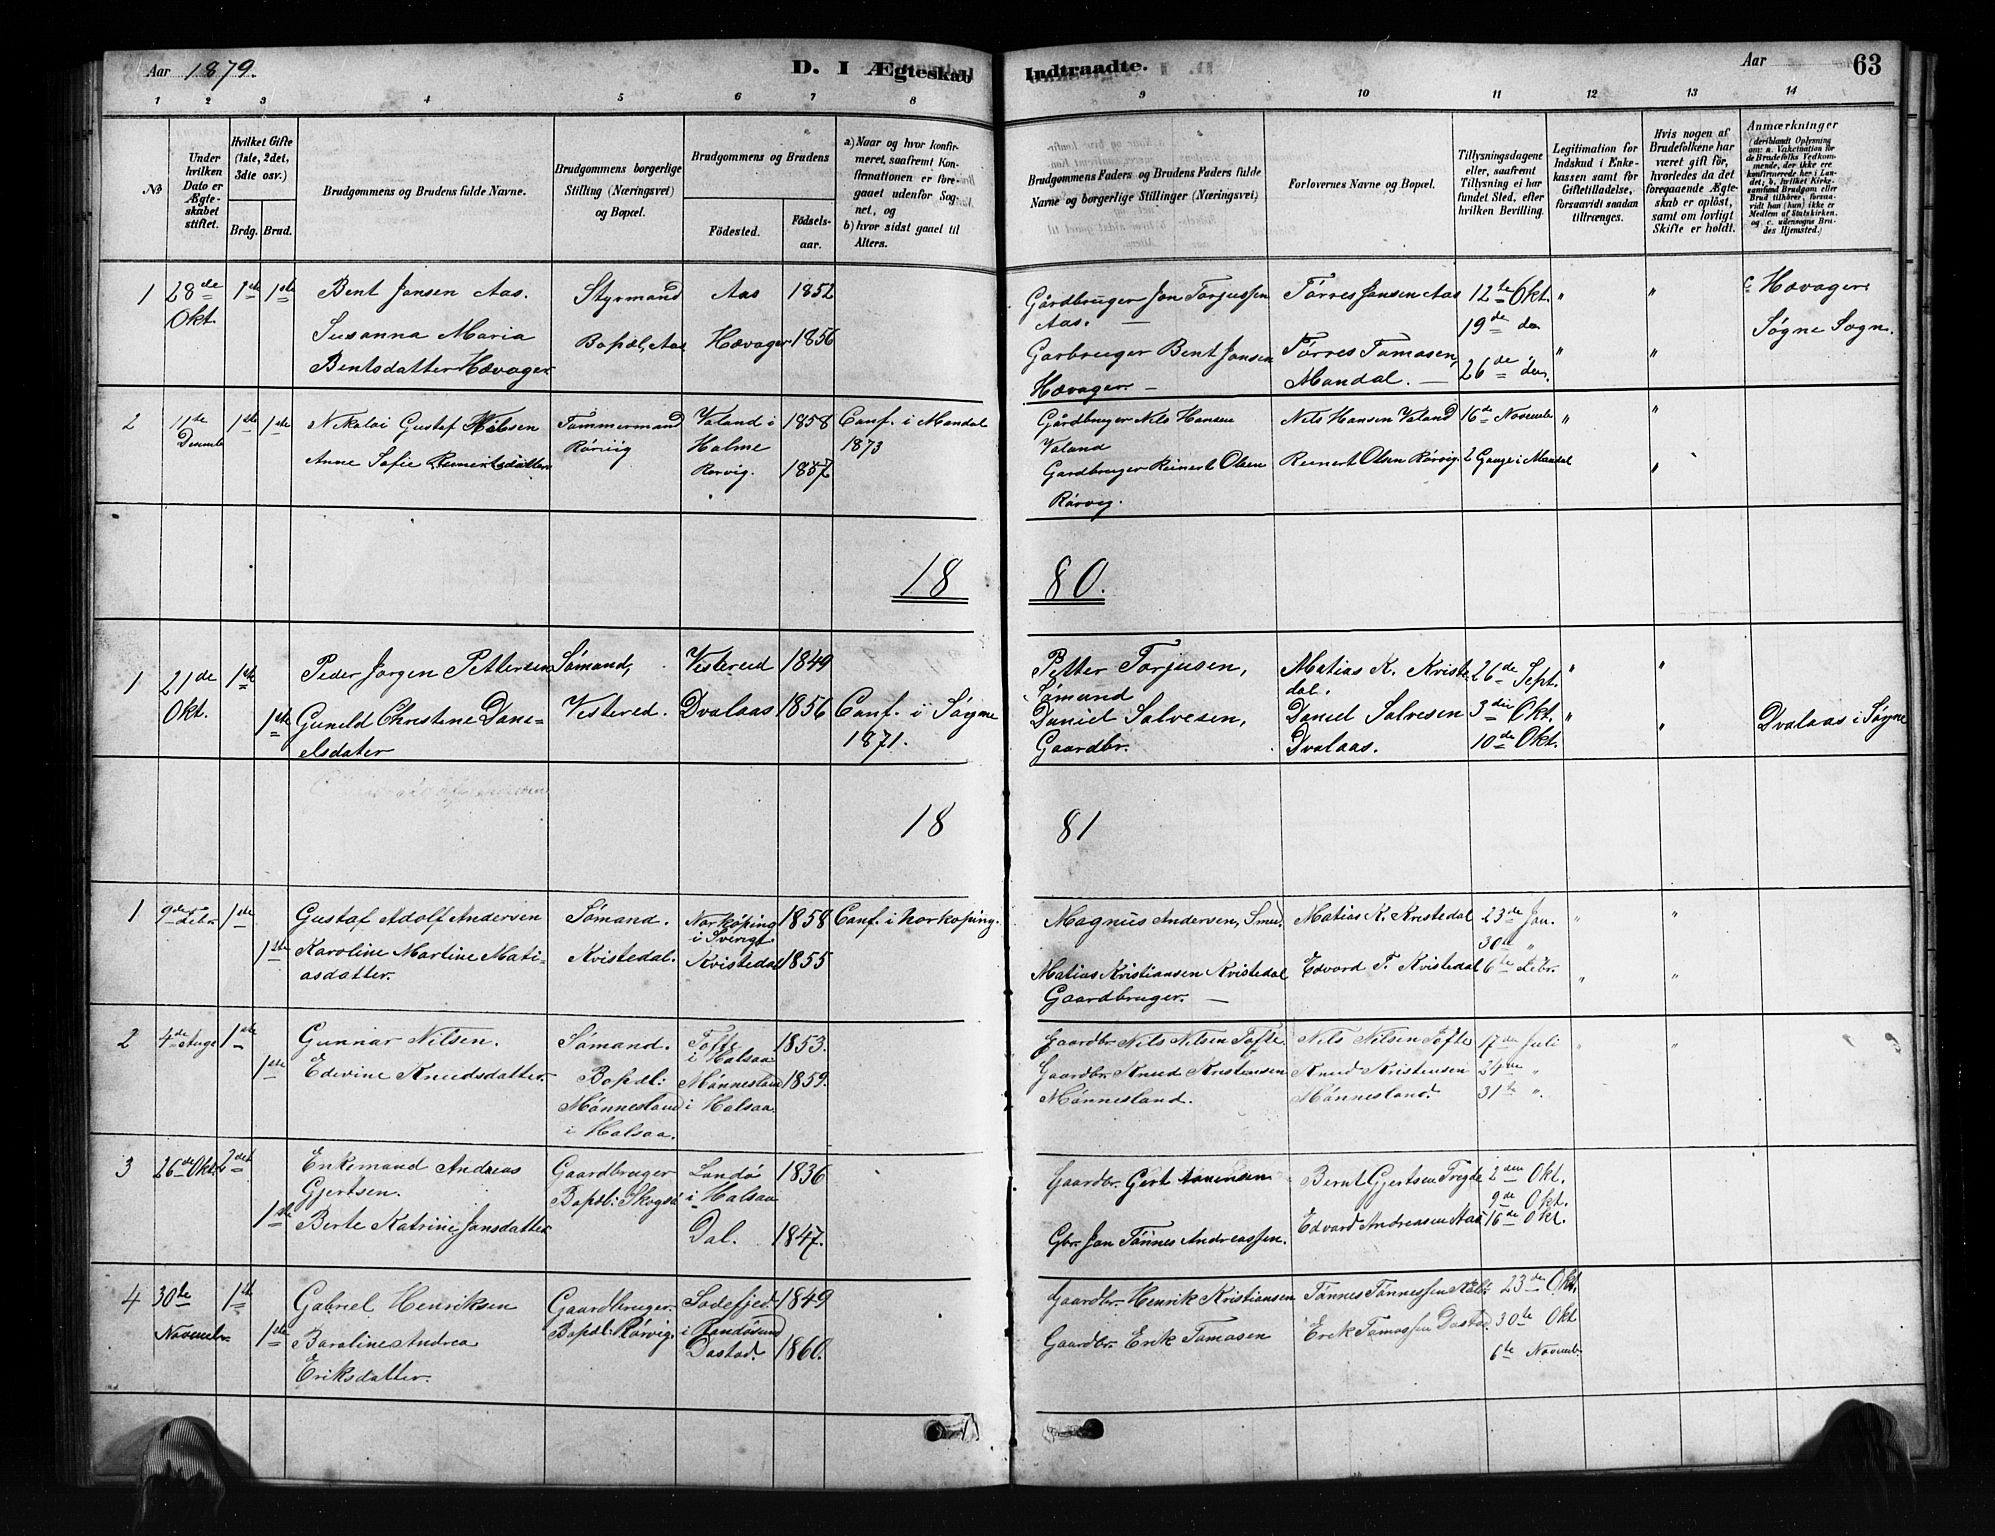 Aar 1879.
D. I Ægteskab
Indtraadte.
Aar
63
1 2 3 4 5 6 7 8
9 10 11 12 13 14
№
Under hvilken Dato er Ægteskabet stiftet.
Hvilket Gifte (1ste, 2det, 3die osv.)
Brdg. Brud.
Brudgommens og Brudens fulde Navne.
Brudgommens borgerlige Stilling (Næringsvei) og Bopæl.
Brudgommens og Brudens
Fødested.
Fødselsaar.
a) Naar og hvor konfirmeret, saafremt Konfirmationen er foregaaet udenfor Sognet, og
b) hvor sidst gaaet til Alters.
Brudgommens Faders og Brudens Faders fulde Navne og borgerlige Stillinger (Næringsvei)
Forlovernes Navne og Bopæl.
Tillysningsdagene eller, saafremt Tillysning ei har fundet Sted, efter hvilken Bevilling.
Legitimation for Indskud i Enkekassen samt for Giftetilladelse, forsaavidt saadan tiltrænges.
Hvis nogen af Brudefolkene har været gift før, hvorledes da det foregaaende Ægteskab er opløst, samt om lovligt Skifte er holdt.
Anmærkninger
(deriblandt Oplysning om: a. Vakcination for de Brudefolks Vedkommende, der ikke ere konfirmerede her i Landet; b. hvilket Kirkesamfund Brudgom eller Brud tilhører, forsaavidt han (hun) ikke er Medlem af Statskirken, og c. udensogns Brudes Hjemsted.)
1 28de 1ste 1ste Bent Jansen Aas. Styrmand Aas 1852
Okt. Susanna Maria Bopæl, Aas Hævager 1856
Bentsdatter Hævager
Gårdbruger Jan Torjussen Tørres Jansen Aas 12te Okt. " " c Hævager
Aas. — 19de do Søgne Sogn.
Garbruger Bent Jansen Tørres Tamasen, " "
Hævager — Mandal. — 26de do.
2 11te 1ste 1ste Nikolai Gustaf Nilsen Tømmermand Valand i 1858 Conf. i Mandal
Desemb Rórvig Halme 1873
Anne Sofie Reinertsdatter Rorvig. 1857
Gårdbruger Nils Hansen Nils Hansen Valand 16de Novemb " "
Valand
Gardbruger Reinert Olsen Reinert Olsen Rórvig. 2 Gange i Mandal "
Rórvig.
18 80.
1 21de 1ste Peder Jorgen Pettersen Sømand, Vestereid 1849
Okt. 1ste Gunild Christene Dani- Vestered. Dvalaas 1856 Conf. i Søgne
elsdater 1871.
Petter Torjusen, Matias K. Kriste- 26de Sept. " "
Sømand dal.
Daniel Salvesen, Daniel Salvesen 3die Okt. " " Dvalaas i Søgne
Gaardbr. Dvalaas. 10de Okt.
18 81
1 9de Febr. 1ste Gustaf Adolf Andersen Sømand. Norkøping 1858 Conf. i Norkoping.
i Sverige
1ste Karoline Martine Mati- Kvistedal. Kvistedal 1855
asdatter.
Magnus Andersen, Smed. Matias K. Kvistedal 23de Jan. " "
30te "
Matias Kristiansen Kvistedal Edvard T. Kvistedal 6te Febr. " "
Gaardbruger. —
2 4de Aug 1ste Gunnar Nilsen. Sømand. Tofte 1853.
i Halsaa
1ste Edevine Knudsdatter. Bopæl: Månnesland 1859.
Månnesland i Halsaa
i Halsaa.
Gaardbr. Nils Nilsen Tofte Nils Nilsen Tofte 17de Juli " "
Gaardbr. Knud Kristensen Knud Kristensen 24de "
Månnesland. Månnesland. 31te "
3 26de Okt. 2det Enkemand Andreas Gaardbruger Landó 1836
Gjertsen. Bopæl: Skogsó i Halsaa
1ste Berte Katrine Jansdatter Dal. 1847.
Gaardbr. Gert Bernt Gjertsen Tregde 2den Okt.
9de Okt.
Gbr. Jan Tónnes Andreassen. Edvard Andreasen Aas 16de Okt.
4 30te 1ste Gabriel Henriksen Gaardbruger. Lodefjed 1849
Novemb. Bopæl: Rórvig. i Randósund
1ste Baroline Andrea Dastad. 1860.
Eriksdatter.
Gaardbr. Henrik Kristiansen Tónnes Tónnessen 23de Okt.
Gaardbr. Erik Tamasen Erik Tamassen Dastad. 30te Okt
6te Novemb.